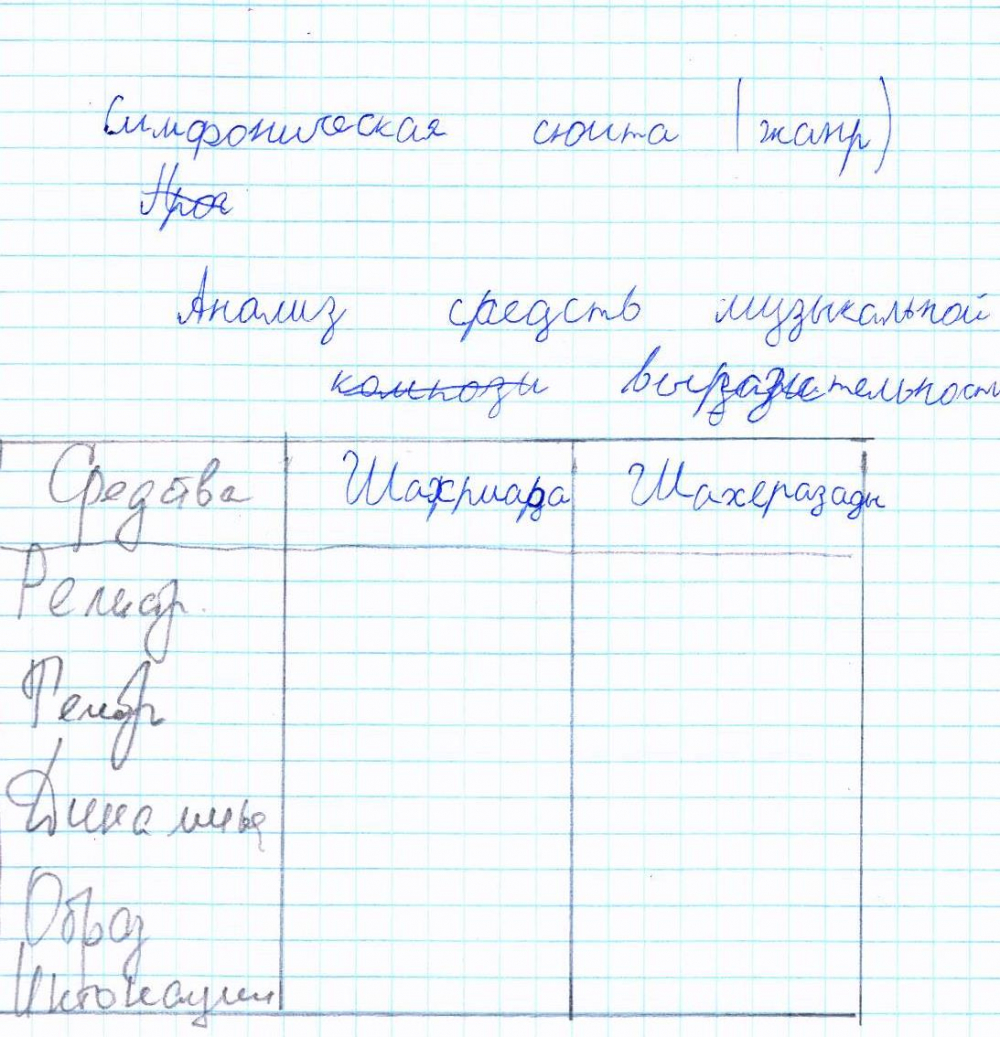 Симфоническая сюита (жанр)
Анализ средств музыкальной
выразительности
Средства Шахриара Шахеразады
Регистр.
Тембр
Динамика
Образ
Интонации